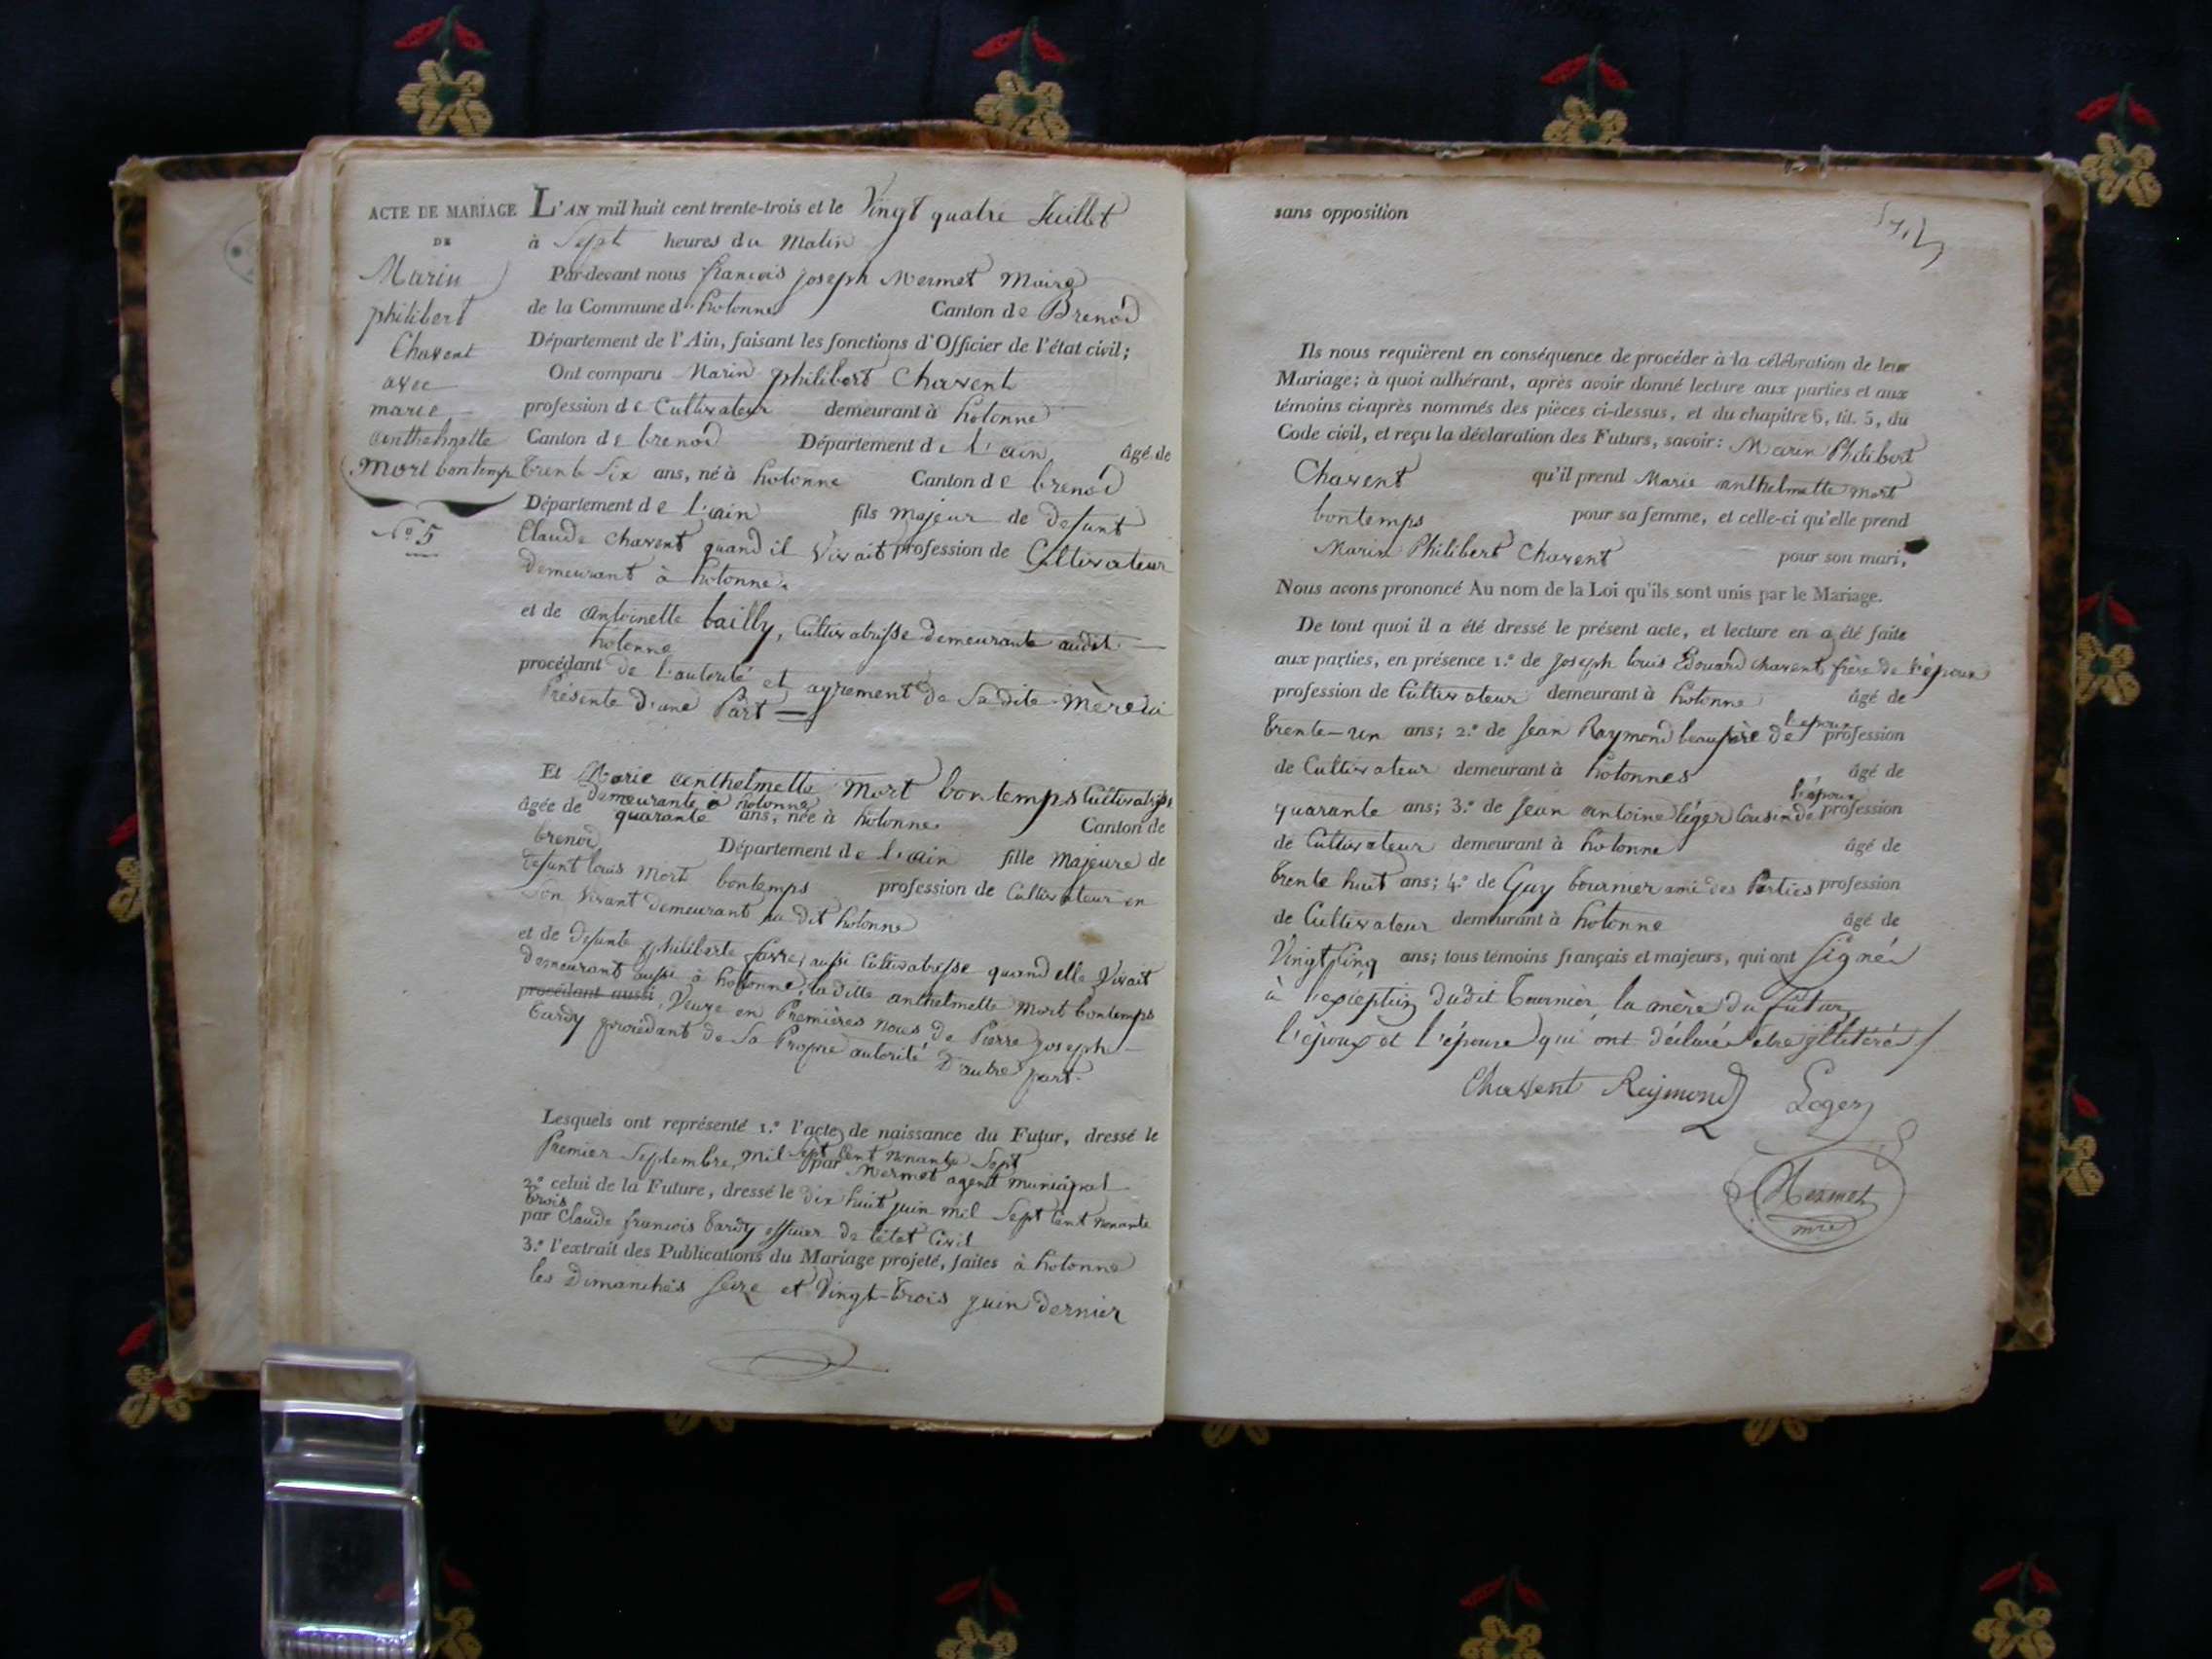 ACTE DE MARIAGE
DE
Marin
philibert
Chavent
avec
marie
anthelmette
Mort bontemp
N.º 5
L'AN mil huit cent trente-trois et le Vingt quatre Juillet
à Sept heures du Matin
Par-devant nous françois joseph Mermet Maire
de la Commune d' hotonne Canton de Brenod
Département de l'Ain, faisant les fonctions d'Officier de l'état civil;
Ont comparu Marin philibert Chavent
profession de Cultivateur demeurant à hotonne
Canton de brenod Département de l'ain âgé de
trente six ans, né à hotonne Canton de brenod
Département de l'ain fils majeur de defunt
Claude chavent quand il Vivait profession de Cultivateur
demeurant à hotonne.
et de antoinette bailly, Cultivatrisse demeurante audit
hotonne
procédant de l'autorité et agrement de Sadite Mère ici
Présente d'une Part
Et Marie anthelmette Mort bontemps Cultivatrisse
demeurante à hotonne
âgée de quarante ans, née à hotonne Canton de
brenod Département de l'ain fille Majeure de
defunt louis Mort bontemps profession de Cultivateur en
Son Vivant demeurant au dit hotonne
et de defunte philiberte favre, aussi Cultivatrisse quand elle Vivait
demeurant aussi à hotonne, la ditte anthelmette Mort bontemps
procédant aussi Veuve en Premières noces de Pierre joseph
tardy procédant de Sa Propre autorité D'autre part.
Lesquels ont représenté 1.º l'acte de naissance du Futur, dressé le
Premier Septembre, Mil Sept Cent Nonante Sept
par Mermet agent municipal
2.º celui de la Future, dressé le dix huit juin mil Sept Cent Nonante
trois
par Claude françois tardy officier de l'état Civil
3.º l'extrait des Publications du Mariage projeté, faites à hotonne
les Dimanches Seize et Vingt-trois juin dernier
sans opposition
Ils nous requièrent en conséquence de procéder à la célébration de leur
Mariage; à quoi adhérant, après avoir donné lecture aux parties et aux
témoins ci-après nommés des pièces ci-dessus, et du chapitre 6, tit. 5, du
Code civil, et reçu la déclaration des Futurs, savoir: Marin Philibert
Chavent qu'il prend Marie anthelmette mort
bontemps pour sa femme, et celle-ci qu'elle prend
Marin Philibert Chavent pour son mari,
Nous avons prononcé Au nom de la Loi qu'ils sont unis par le Mariage.
De tout quoi il a été dressé le présent acte, et lecture en a été faite
aux parties, en présence 1.º de Joseph louis Edouard chavent frère de l'époux
profession de Cultivateur demeurant à hotonne âgé de
trente-un ans; 2.º de Jean Raymond beaufrère de l'époux profession
de Cultivateur demeurant à hotonnes âgé de
quarante ans; 3.º de Jean antoine léger Cousin de l'époux profession
de Cultivateur demeurant à hotonne âgé de
trente huit ans; 4.º de Guy tournier ami des Parties profession
de Cultivateur demeurant à hotonne âgé de
Vingt Cinq ans; tous témoins français et majeurs, qui ont Signé
à l'exception dudit tournier la mère du futur
l'époux et l'épouse qui ont déclaré être illitéré
Chavent Reymond Leger
Mermet
mre